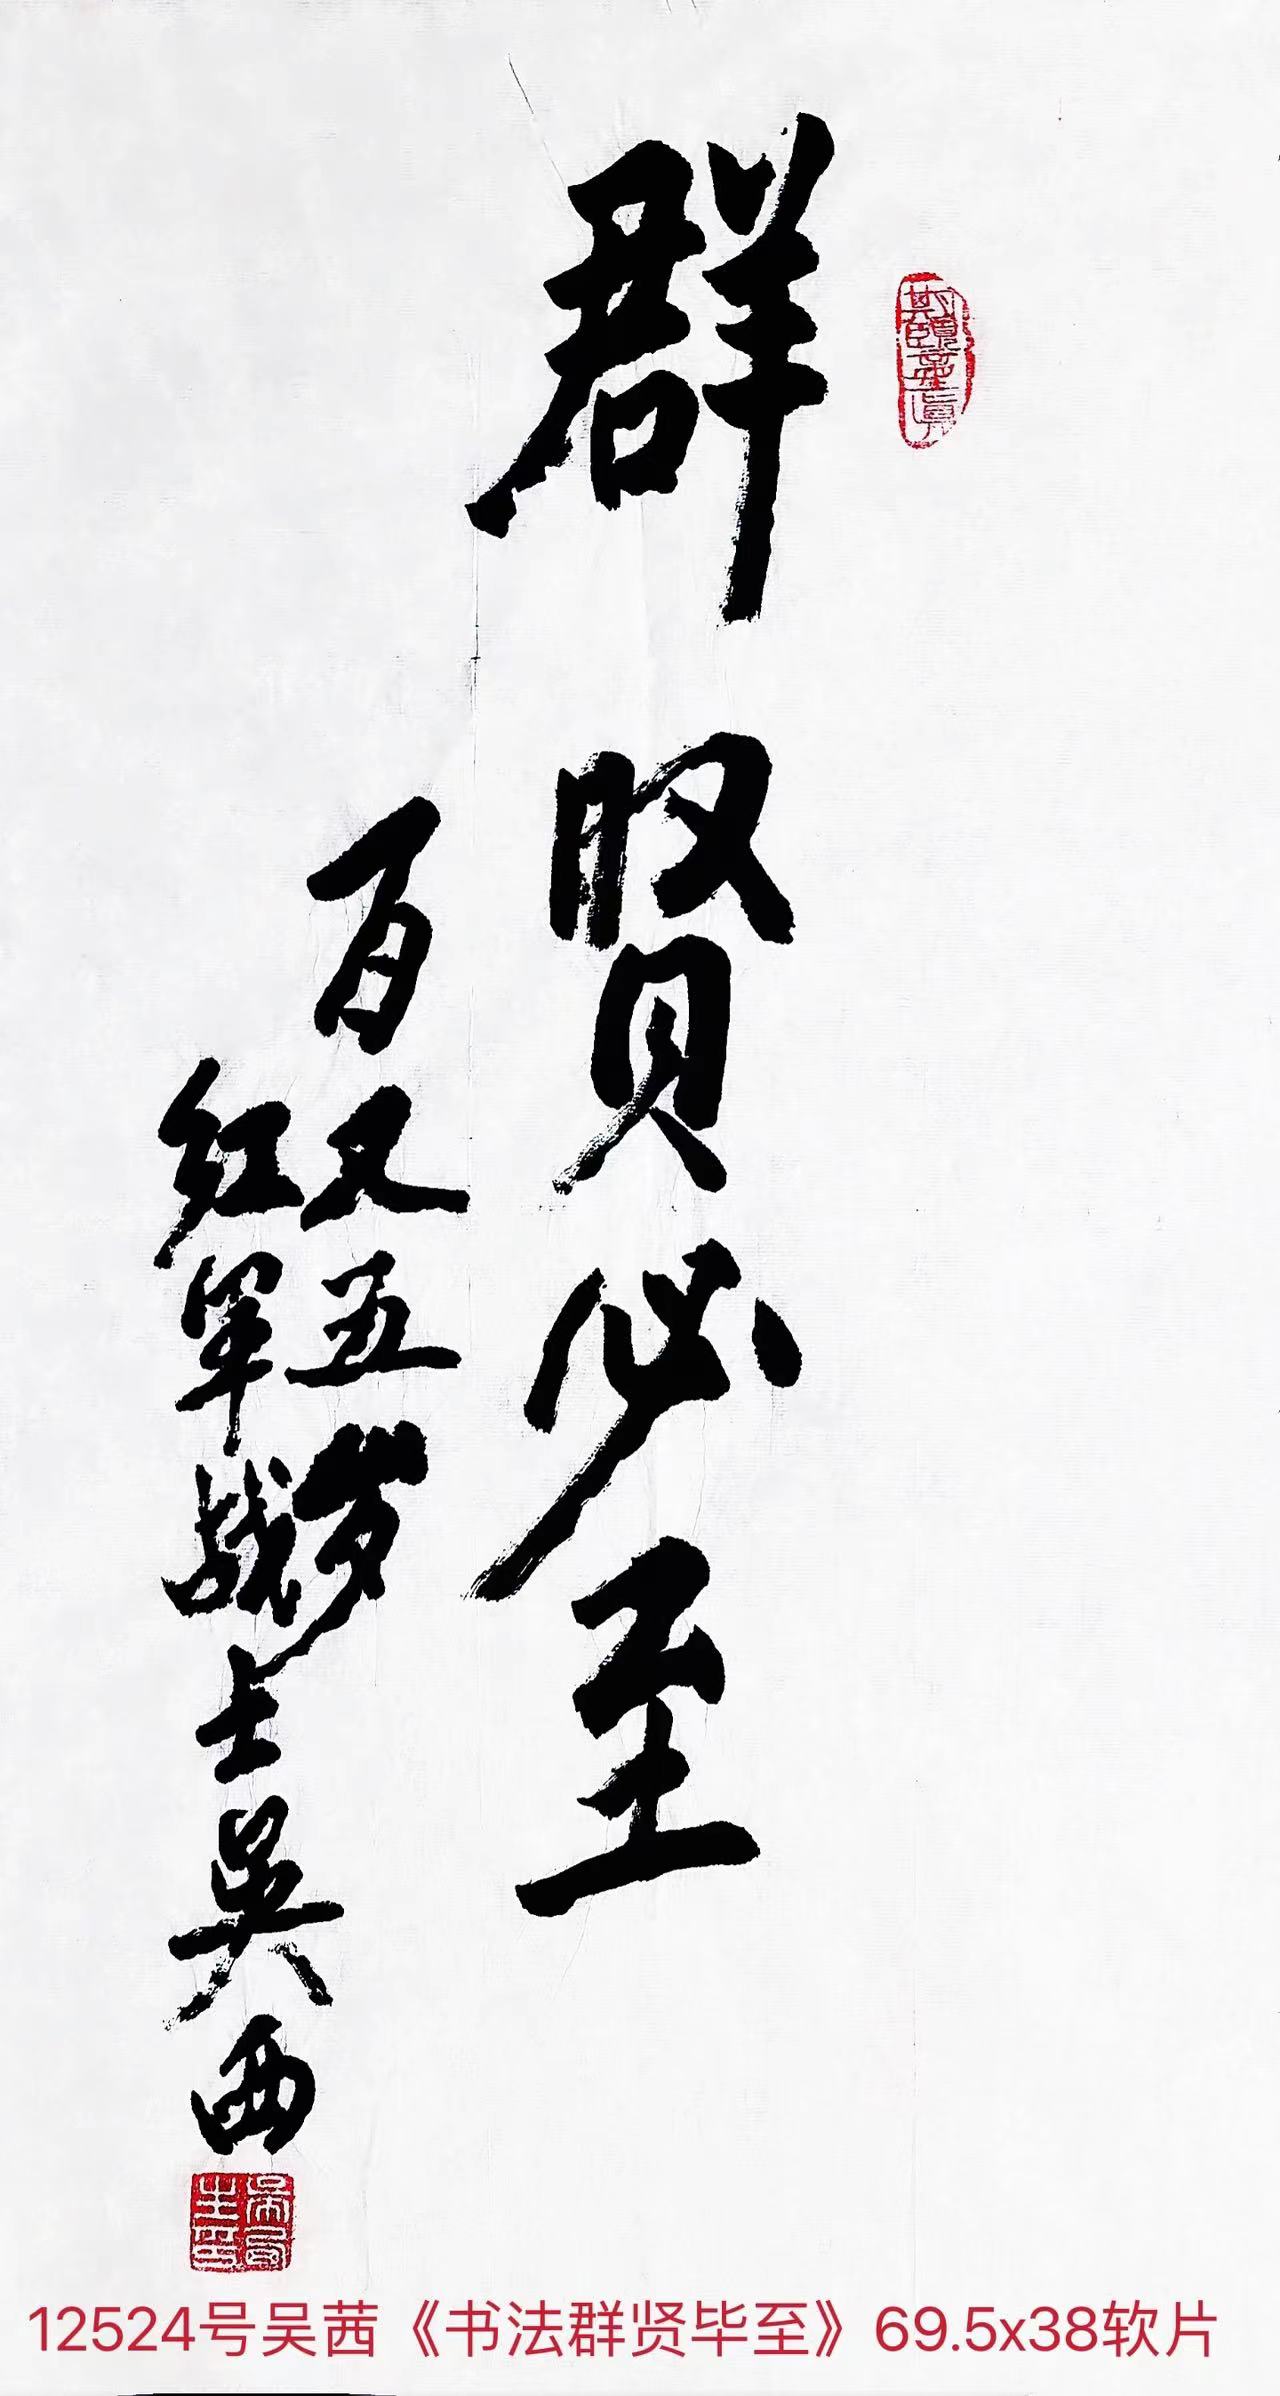 群贤必至
百又五岁
红军战士吴西
12524号吴茜《书法群贤毕至》69.5x38软片